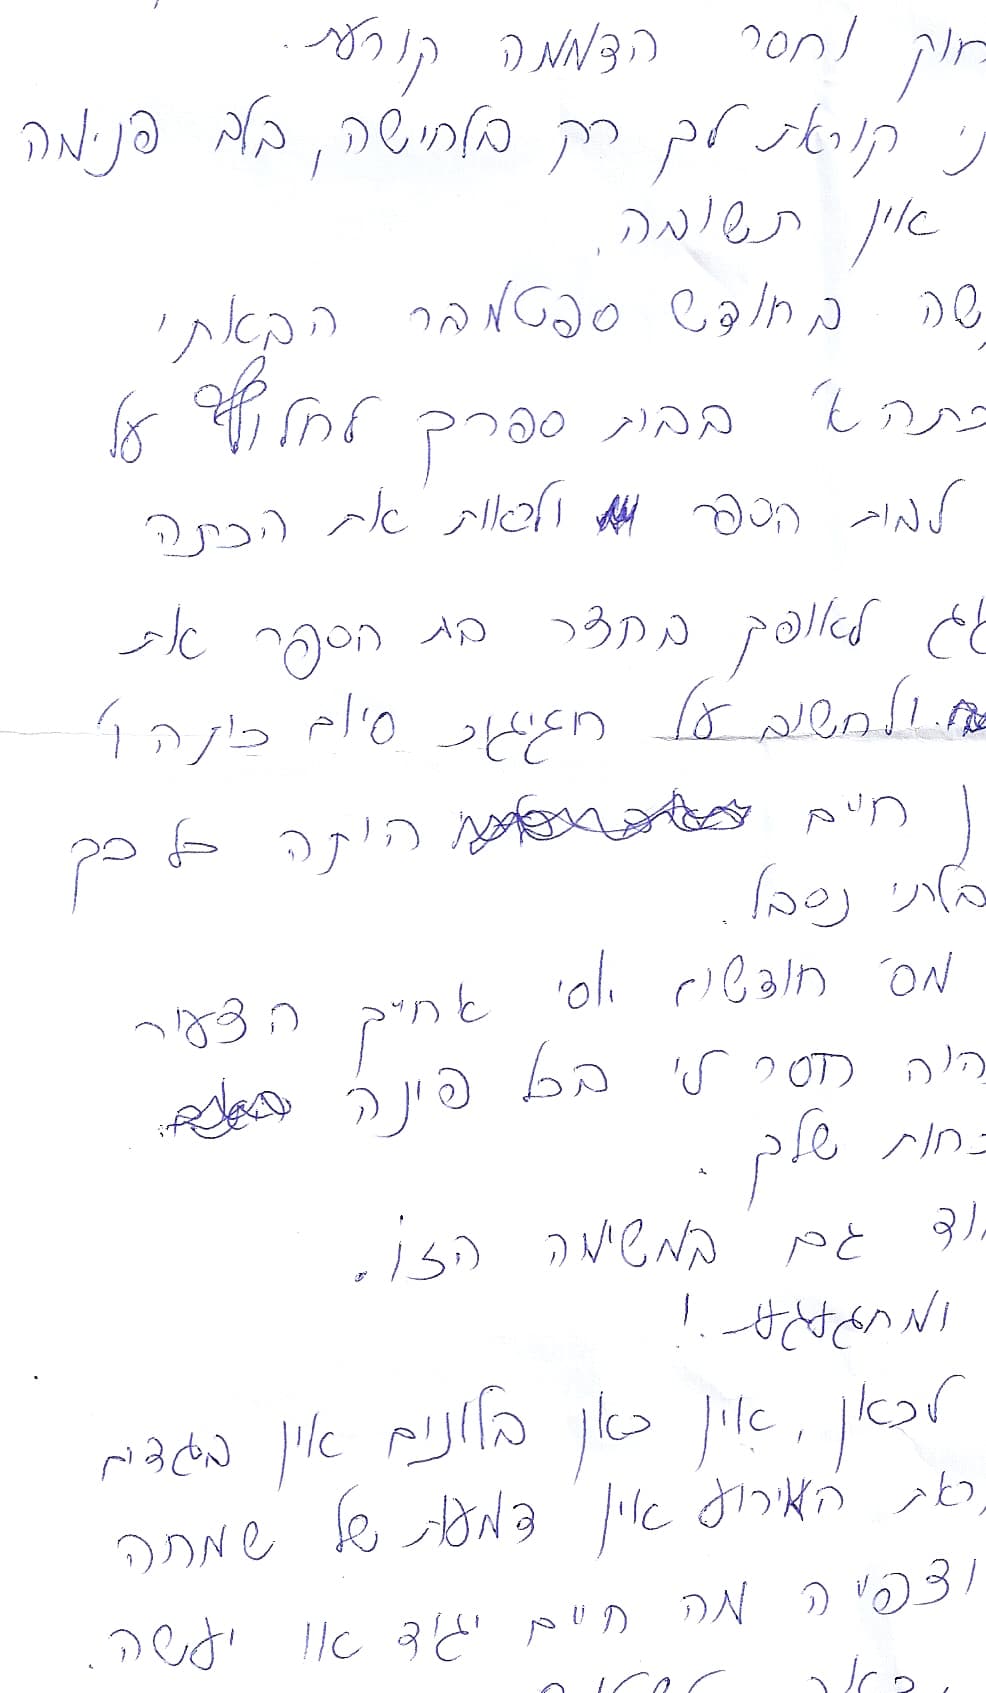 חוק וחסר הדממה קורעת.
ני קוראת לך רק בלחישה, בלב פנימה
אין תשובה.
שה בחודש ספטמבר הבאתי
כתה א' בבית ספרך לחלוף על
לבית הספר ולראות את הכתה
גג לאופק בחצר בת הספר את
ולחשוב על חגיגת סיום כיתה ו'
ן חיים היתה כל כך
בלתי נסבל.
מס' חודשים אסי אחיך הצעיר
היה חסר לי בכל פינה
כחות שלך.
וד גם במשימה הזו.
ומתגעגעת.!
לכאן, אין כאן בלונים אין בגדים
ראת האירוע אין דמעות של שמחה
וצפייה מה חיים יגיד או יעשה.